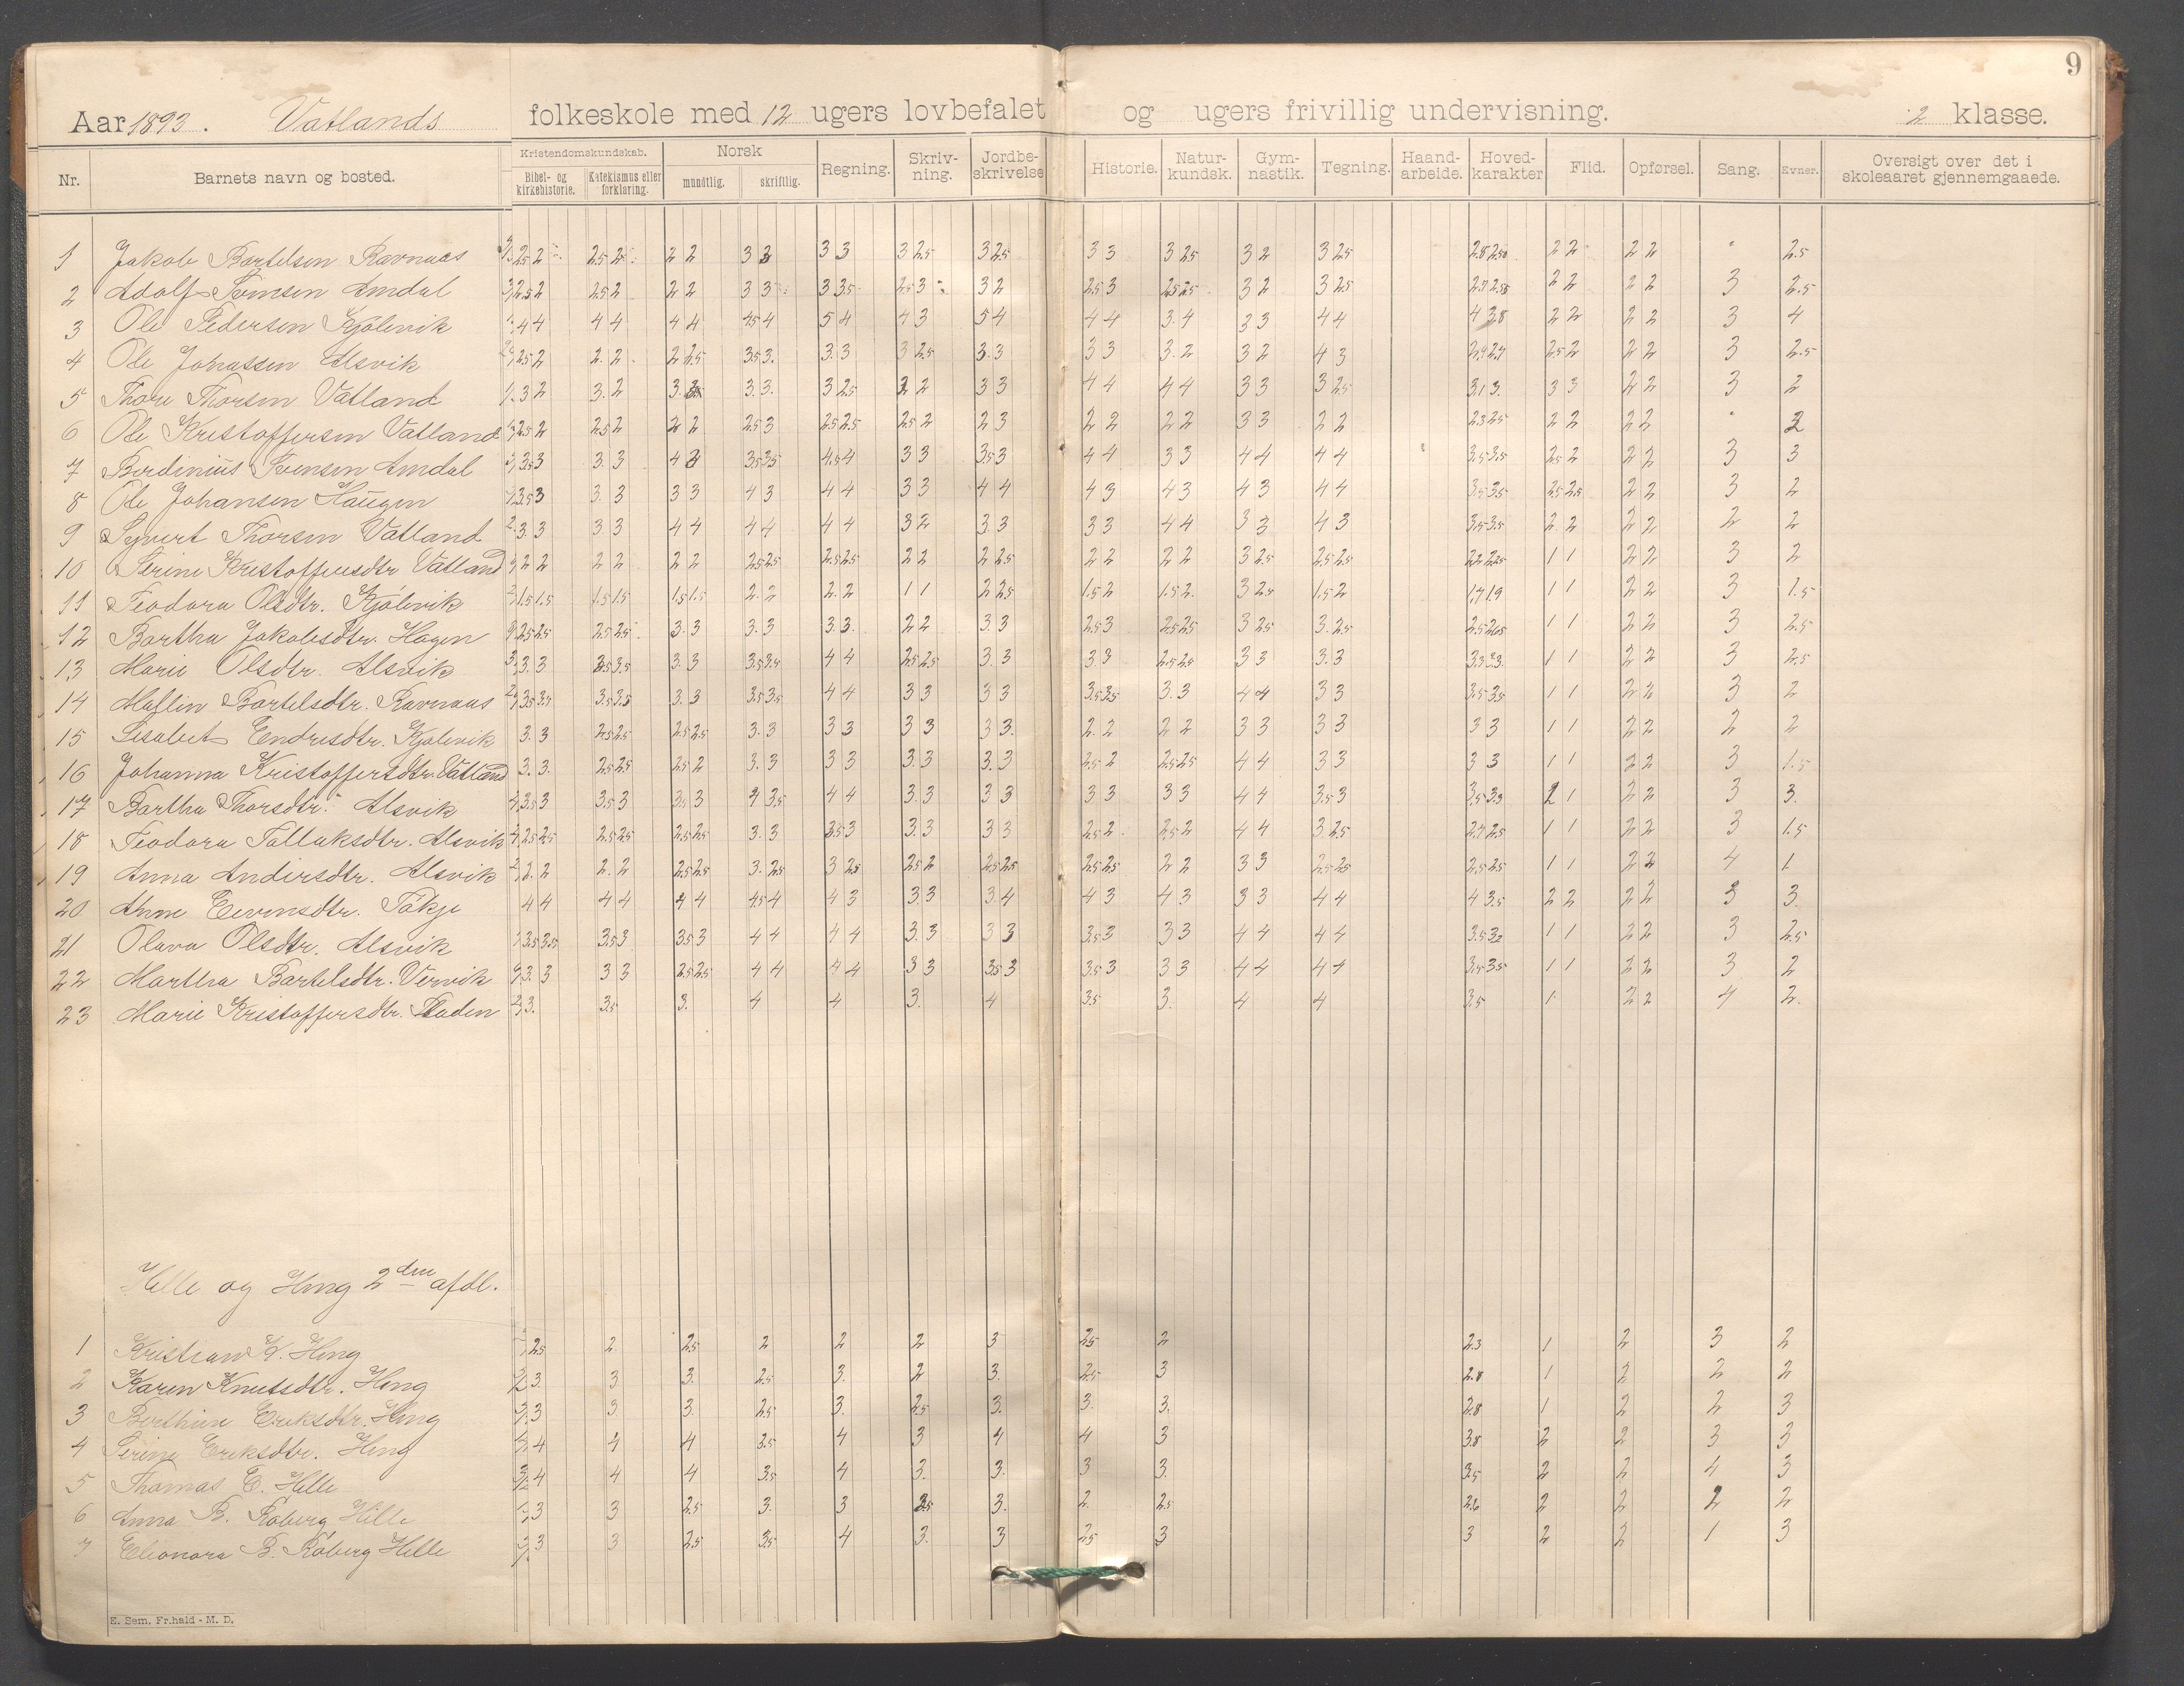 9
Aar 1893. Vatlands folkeskole med 12 ugers lovbefalet og ugers frivillig undervisning. 2 klasse.
Nr. Barnets navn og bosted. Kristendomskundskab. Bibel- og kirkehistorie. Katekismus eller forklaring. Norsk mundtlig. skriftlig. Regning. Skriv-ning. Jordbe-skrivelse Historie. Natur-kundsk. Gym-nastik. Tegning. Haand-arbeide. Hoved-karakter Flid. Opførsel. Sang. Evner. Oversigt over det i skoleaaret gjennemgaaede.
1 Jakob Bartelsen Ravnaas 2.5 2 2.5 2 2 2 3 3 3 3 3 2.5 3 2.5 3 3 3 2.5 3 2 3 2.5 2.8 2.50 2 2 2 2 " 2.5
2 Adolf Svensen Amdal 2.5 2 2.5 2 2 2 3 3 3 3.5 2.5 3 3 2 2.5 3 2.5 2.5 3 2 3 2.5 2.7 2.58 2 2 2 2 3 2.5
3 Ole Pedersen Kjølevik 4 4 4 4 4 4 4.5 4 5 4 4 3 5 4 4 4 3.4 3 3 4 4 4 3.8 2 2 2 2 3 4
4 Ole Johassen Alsvik 2.5 2 2.2 2 2.5 3.5 3. 3.3 3 2.5 3.3 3 3 3.2 3 2 4 3 2.9 2.7 2.5 2 2 2 3 2.5
5 Thore Thorsen Vatland 3 2 3.2 3. 3.3. 3 2.5 2 2 3 3 4 4 4 4 3 3 3 2.5 3.1 3. 3 3 2 2 3 2
6 Ole Kristoffersen Vatland 2.5 2 2.5 2 2 2 2.5 3 2.5 2.5 2.5 2 2 3 2 2 2 2 3 3 2 2 2.3 2.5 2 2 2 2 " 2
7 Berdinius Svensen Amdal 3.5 3 3.3 4 3.5 3.5 4.5 4 3 3 3.5 3 4 4 3 3 4 4 4 4 3.5 3.5 2.5 2 2 2 3 3
8 Ole Johansen Haugen 3.5 3 3.3 3 3 4 3 4 4 3 3 4 4 4 3 4 3 4 3 4 4 3.5 3.5 2.5 2.5 2 2 3 2
9 Syvert Thorsen Vatland 3.3 3 3 4 4 4 4 4 4 3 2 3.3 3 3 4 4 3 3 4 3 3.5 3.5 2 2 2 2 2 2
10 Serine Kristoffersdtr Vatland 2 2 2 2 2 2 2.5 2.5 2.5 2.5 2 2 2 2.5 2 2 2 2 3 2.5 2.5 2.5 2.2 2.25 1 1 2 2 3 2
11 Teodora Olsdtr. Kjølevik 1.5 1.5 1.5 1.5 1.5 1.5 2.2 2.2 1 1 2 2.5 1.5 2 1.5 2. 3 2.5 1.5 2 1.7 1.9 1 1 2 2 3 1.5
12 Bartha Jakobsdtr. Hagen 2.5 2.5 2.5 2.5 3.3 3.3 3.3. 2 2 3.3 2.5 3 2.5 2.5 3 2.5 3. 2.5 2.5 2.65 1 1 2 2 3 2.5
13 Marie Olsdtr. Alsvik 3.3 3.5 3.5 3.3 3.5 3.5 4 4 2.5 2.5 3.3 3 3 2.5 2.5 3 3 3.3 3.3 3.3. 1 1 2 2 3 2.5
14 Mallin Bartelsdtr. Ravnaas 3.5 3.5 3.5 3.5 3.3 3.5 3.5 4 4 3 3 3 3 3.5 3.5 3.3 4 4 3 3 3.5 3.5 1 1 2 2 3 2
15 Lisabet Endresdtr. Kjølevik 3.3 2.5 2.5 2.5 2.5 3.3 3 3 3 3 3 3. 2.2 2 2 3 3 3 3 3 3 1 1 2 2 2 2
16 Johanna Kristoffersdtr. Vatland 3.3. 2.5 2.5 2.5 2 3.3 3 3 3.3 3.3 2.5 2 2.5 2.5 4 4 3 3 3 3 1 1 2 2 3 1.5
17 Bartha Thorsdtr. Alsvik 3.5 3 3.5 3 3.5 3 4 3.5 4 4 3.3 3 3 3 3 3 3 4 4 3.5 3 3.5 3.3 2 1 2 2 3 3.
18 Teodora Tallaksdtr. Alsvik 2.5 2.5 2.5 2.5 2.5 2.5 3.3 3.5 3 3.3 3 3 2.5 2. 2.5 2 4 4 3 2.5 2.7 2.5 1 1 2 2 3 1.5
19 Anna Andersdtr. Alsvik 2.2 2.2 2.5 2.5 3. 2.5 3 2.5 2.5 2 2.5 2.5 2.5 2.5 2 2 3 3 2.5 2.5 2.5 2.5 1 1 2 2 4 1
20 Anne Eevensdtr. Tøkje 4 4 4 4 4 4 4.5 4 4 3 3.3 3.4 4 3 4 3 3 3 4 4 4 3.5 2 2 2 2 3 3.
21 Olava Olsdtr. Alsvik 3.5 3.5 3.5 3 3.5 3 4 4 4 4 3.3 3 3 3.5 3 3 3 4 4 4 4 3.5 3.2 1 1 2 2 3 2.5
22 Martha Bartelsdtr. Vervik 3.3 3 3 2.5 2.5 4 4 4 4 3 3 3.5 3 3.5 3 3 3 4 4 4 4 3.5 3.5 1 1 2 2 3 2
23 Marie Kristoffersdtr. 3. 3.5 3. 4 4 3. 4 3.5 3. 4 4 3.5 1 2 2 4 2.
Helle og Heng 2den afdl.
1 Kristian K. Heng 2.5 2. 2.5 2 2 2 3 2.5 2 2.3 1 2 3 2
2 Karen Knutsdtr. Heng 3. 3 3. 2.5 3. 2 3. 2.5 3 2.8 1 2 2 2
3 Berthine Eriksdtr. Heng 3 3 3. 2.5 3. 2.5 3. 3. 3. 2.8 1 2 2 3
4 Serine Eriksdtr. Heng 4 4 4 3.5 4 3 4 4 3 3.8 2 2 3 3
5 Thomas E. Helle 4 4 4 3.5 4 3. 3. 3 3. 3.5 2 2 4 3
6 Anna B. Røberg Helle 3 3 2.5 3. 3 2.5 3. 2. 2.5 2.6 2 2 2 2
7 Elionora B. Røberg Helle 3 3 2.5 3.5 4 3. 3 2.5 3 3 2 2 1 3
E. Sem. Fr.hald - M. D.